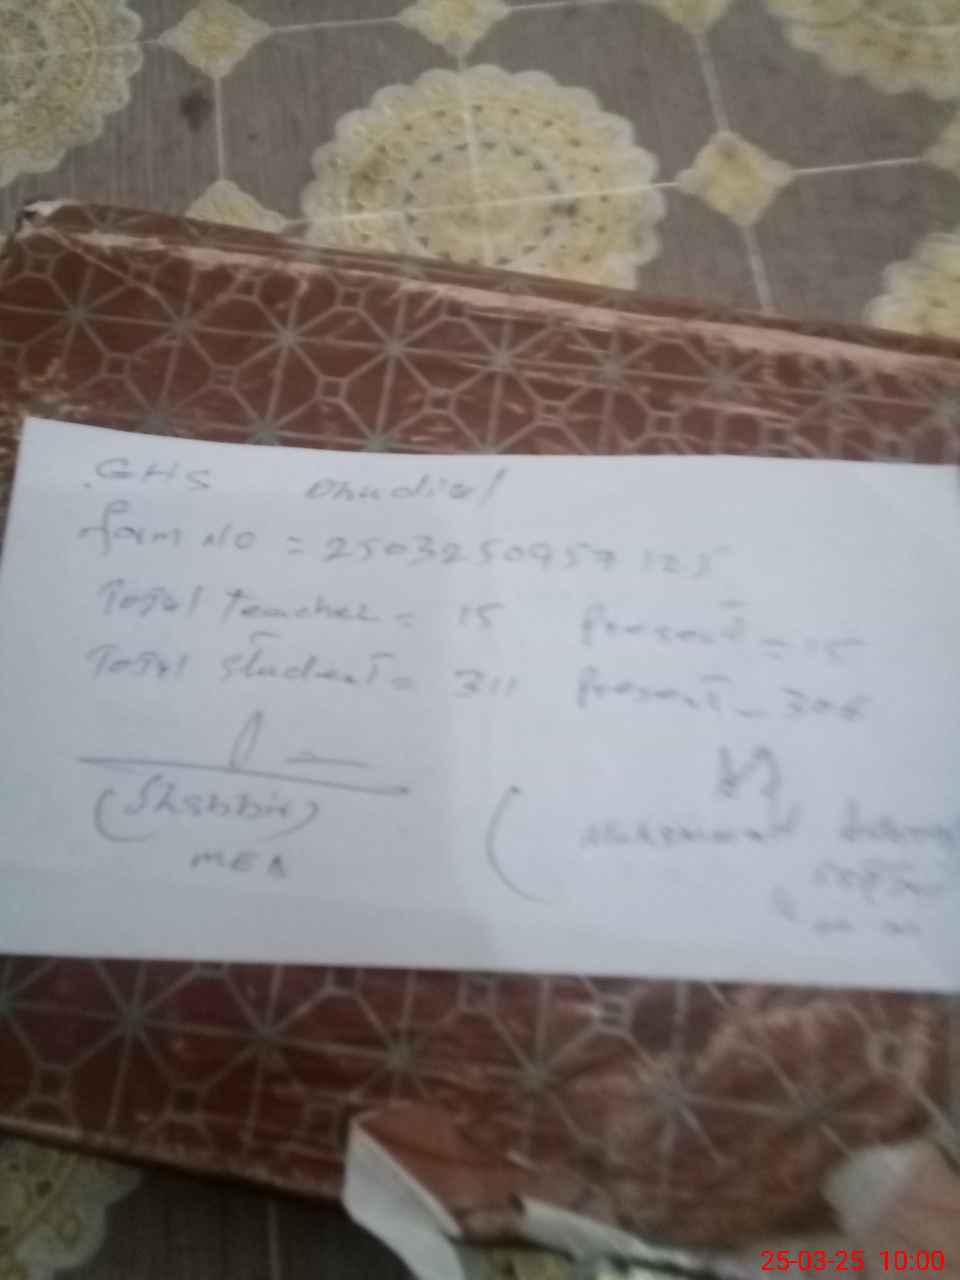 GHS Dhudial
form NO = 2503250957125
Total teacher = 15 Present = 15
Total student = 311 Present = 306
(Shabbir)
MEA
25-03-25 10:00